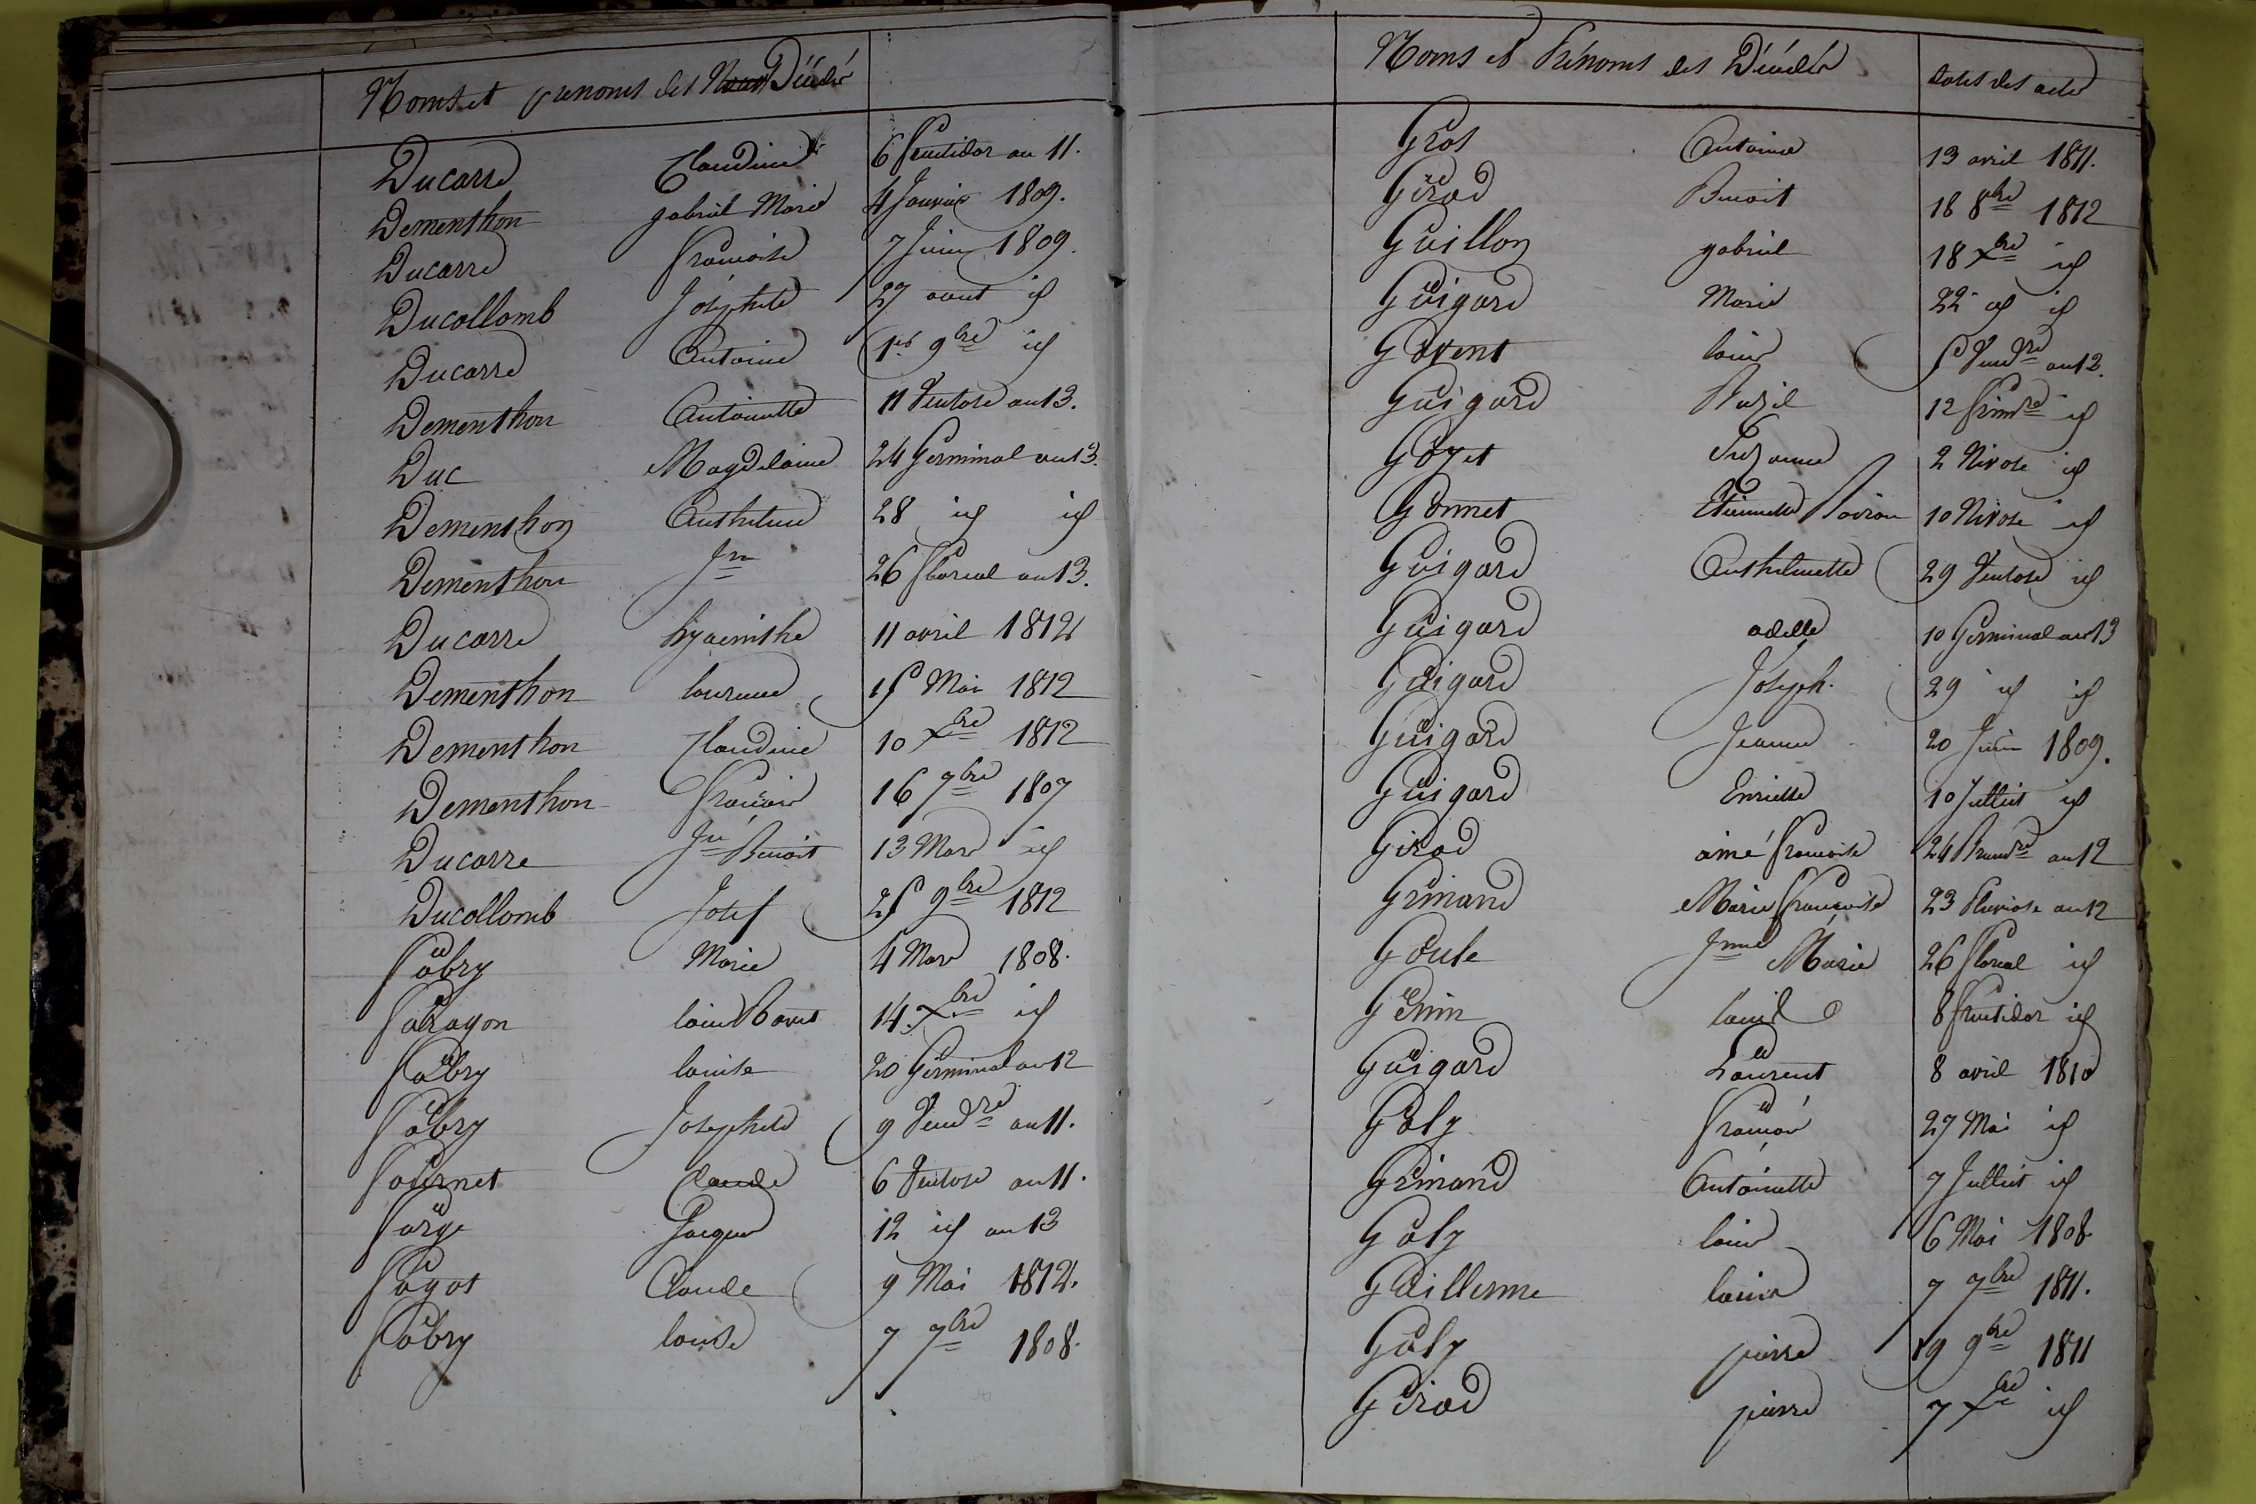 Noms et prenoms des Décédés
Ducarre Claudine 6 fructidor an 11.
Dementhon gabriel Marie 4 Janvier 1809.
Ducarre francoise 7 Juin 1809.
Ducollomb Josephte 27 aout id
Ducarre Antoine 1er 9bre id
Dementhon Antoinette 11 Ventose an 13.
Duc Magdelaine 24 Germinal an 13.
Dementhon Anthelme 28 id id
Dementhon Jn 26 floreal an 13.
Ducarre hyacinthe 11 avril 1812
Dementhon laurence 15 Mai 1812
Dementhon Claudine 10 Xbre 1812
Dementhon francois 16 7bre 1807
Ducarre Jn Benoit 13 Mars id
Ducollomb Josef 25 9bre 1812
fabry Marie 4 Mars 1808.
faragon louis 14 Xbre id
fabry louise 20 Germinal an 12
fabry Josephte 9 Vendre an 11.
fournet Claude 6 Ventose an 11.
farge Jacques 12 id an 13
fagot Claude 9 Mai 1812.
fabry louise 7 7bre 1808.
Noms et Prénoms des Décédés dates des actes
Gros Antoine 13 avril 1811.
Girod Benoit 18 8bre 1812
Guillon gabriel 18 Xbre id
Guigard Marie 22 id id
Govent louis 5 Vendre an 12.
Guigard 12 frimre id
Goyet Suzanne 2 Nivose id
Gonnet Etiennette 10 Nivose id
Guigard Anthelmette 29 Ventose id
Guigard adelle 10 Germinal an 13
Guigard Joseph. 29 id id
Guigard Jeanne 20 Juin 1809.
Guigard Enriette 10 Julliet id
Girod aimé francoise 24 Brumre an 12
Grimand Marie francoise 23 Pluviose an 12
Goule Jnne Marie 26 floreal id
Genin louis 8 fructidor id
Guigard Laurent 8 avril 1810
Galy francois 27 Mai id
Grimand Antoinette 7 Julliet id
Galy louis 6 Mai 1808
Guillerme louis 7 7bre 1811.
Galy pierre 19 9bre 1811
Girod pierre 7 Xbre id